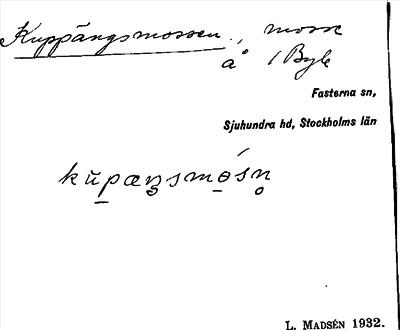 Kuppängsmossen, mosse
å / Byle
Fasterna sn,
Sjuhundra hd, Stockholms län
L. MADSÉN 1932.